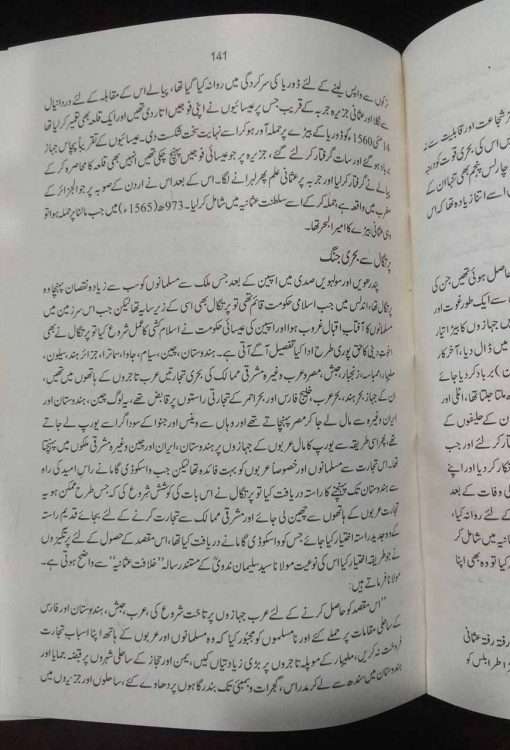 141
ترکوں سے واپس لینے کے لئے ڈوریا کی سرکردگی میں روانہ کیا گیا تھا، پیالے اس کے مقابلہ کے لئے درِ دانیال
سے نکلا اور عثمانی جزیرہ جربہ کے قریب جس پر عیسائیوں نے اپنی فوجیں اتار دی تھیں اور ایک قلعہ بھی تعمیر کر لیا تھا
14 مئی 1560 کو ڈوریا کے بیڑے پر حملہ آور ہو کر اسے نہایت سخت شکست دی۔ عیسائیوں کے تقریباً پچاس جہاز
برباد ہو گئے اور سات گرفتار کر لئے گئے، جزیرہ پر جو عیسائی فوجیں پہنچ چکی تھیں انہیں بھی قلعہ کا محاصرہ کر کے
پیالے نے گرفتار کر لیا اور جربہ پر عثمانی علم پھر لہرانے لگا۔ اس کے بعد اس نے اردن کے صوبہ پر جو الجزائر کے
مغرب میں واقعہ ہے حملہ کر کے اسے سلطنت عثمانیہ میں شامل کر لیا۔ 973ھ (1565ء) میں جب مالٹا پر حملہ ہوا تو
وہی عثمانی بیڑے کا امیر البحر تھا۔
پرتگال سے بحری جنگ
پندرھویں اور سولہویں صدی میں اسپین کے بعد جس ملک سے مسلمانوں کو سب سے زیادہ نقصان پہنچا وہ
پرتگال تھا، اندلس میں جب اسلامی حکومت قائم تھی تو پرتگال بھی اسی کے زیر سایہ تھا لیکن جب اس سرزمین میں
مسلمانوں کا آفتاب اقبال غروب ہوا اور اسپین کی عیسائی حکومت نے اسلام کشی کا عمل شروع کیا تو پرتگال نے بھی
اخوت دینی کا حق پوری طرح ادا کیا تفصیل آگے آتی ہے۔ ہندوستان، چین، سیام، جاوا، ساترا، جزائر ہند، سیلون،
ملیبار، ممباسہ، زنجبار، حبش، مصر و عرب وغیرہ مشرقی ممالک کی بحری تجارتیں عرب تاجروں کے ہاتھ میں تھیں،
ان کے جہاز بحر ہند، بحر عرب، خلیج فارس اور بحر احمر کے تجارتی راستوں پر قابض تھے، یہ لوگ چین، ہندوستان اور
ایران وغیرہ سے مال لے جا کر مصر پہنچاتے تھے اور وہاں سے وینس اور جنوا کے سوداگر اسے یورپ لے جاتے
تھے، پھر اسی طریقہ سے یورپ کا مال عربوں کے جہازوں پر ہندوستان، ایران اور چین وغیرہ مشرقی ملکوں میں پہنچتا
تھا۔ اس تجارت سے مسلمانوں اور خصوصاً عربوں کو بہت فائدہ تھا لیکن جب واسکوڈی گاما نے راس امید کی راہ
سے ہندوستان تک پہنچنے کا راستہ دریافت کیا تو پرتگال نے اس بات کی کوشش شروع کی کہ جس طرح ممکن ہو یہ
تجارت عربوں کے ہاتھوں سے چھین لی جائے اور مشرقی ممالک سے تجارت کرنے کے لئے بجائے قدیم راستہ
کے وہ جدید راستہ اختیار کیا جائے جس کو واسکوڈی گاما نے دریافت کیا تھا، اس مقصد کے حصول کے لئے پرتگیزوں
نے جو طریقہ اختیار کیا اس کی نوعیت مولانا سید سلیمان ندویؒ کے مستند رسالہ ”خلافت عثمانیہ“ سے واضح ہوتی ہے۔
مولانا فرماتے ہیں:
”اس مقصد کو حاصل کرنے کے لئے عرب جہازوں پر تاخت شروع کی، عرب، حبش، ہندوستان اور فارس
کے ساحلی مقامات پر حملے کئے اور نا مسلموں کو مجبور کیا کہ وہ مسلمانوں اور عربوں کے ہاتھ اپنا اسباب تجارت
فروخت نہ کریں، ملیبار کے موپلہ تاجروں پر بڑی زیادتیاں کیں، یمن اور حجاز کے ساحلی شہروں پر قبضہ جمایا اور
ہندوستان میں سندھ سے لے کر مدراس، گجرات و بمبئی تک بندرگاہوں پر دھاوے کئے، ساحلوں اور جزیروں میں